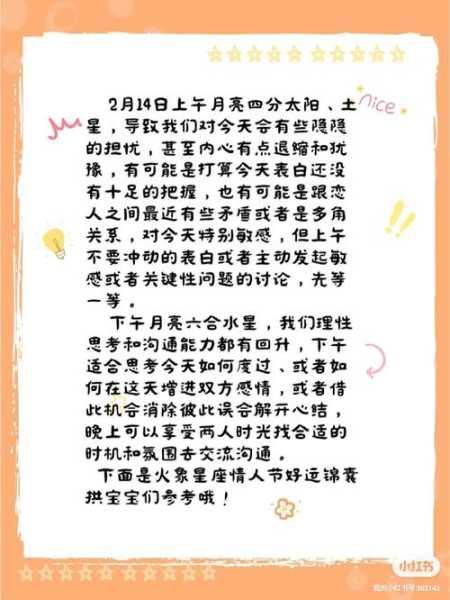 2月14日上午月亮四分太阳、土
nice
星，导致我们对今天会有些隐隐
的担忧，甚至内心有点退缩和犹
豫，有可能是打算今天表白还没
有十足的把握，也有可能是跟恋
人之间最近有些矛盾或者是多角
关系，对今天特别敏感，但上午
不要冲动的表白或者主动发起敏
感或者关键性问题的讨论，先等
一等。
下午月亮六合水星，我们理性
思考和沟通能力都有回升，下午
适合思考今天如何度过、或者如
何在这天增进双方感情，或者借
此机会消除彼此误会解开心结，
晚上可以享受两人时光找合适的
时机和氛围去交流沟通。
下面是火象星座情人节好运锦囊
供宝宝们参考哦！
小红书